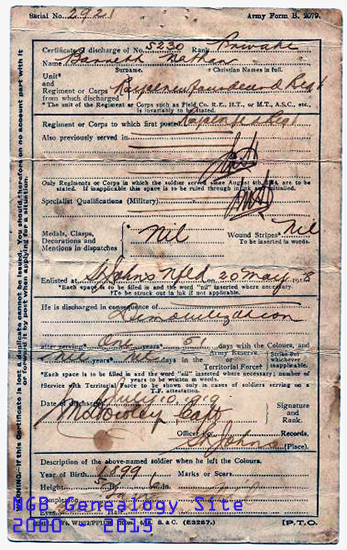 Serial No. 2921 Army Form B. 2079.
Certificate of discharge of No. 5230 Rank Private
Name Barrett Nathan
Surname. Christian Names in full.
Unit*
and
Regiment or Corps Royal Newfoundland Regt
from which discharged
*The unit of the Regiment or Corps such as Field Co. R.E., H.T., or M.T., A.S.C., etc.,
is invariably to be stated.
Regiment or Corps to which first posted
Also previously served in
Only Regiments or Corps in which the soldier served since August 4th, 1914 are to be
stated. If inapplicable this space is to be ruled through in ink and initialled.
Specialist Qualifications (Military)
Medals, Clasps,
Decorations and
Mentions in dispatches
Nil
Wound Stripes* Nil
To be inserted in words.
Enlisted at St Johns Nfld 20 May
*Each space is to be filled in and the word "nil" inserted where necessary.
†To be struck out in ink if not applicable.
He is discharged in consequence of
Demobilization
after serving* One 51 days with the Colours, and
years* days in the
Army Reserve
or
Territorial Force†
Strike out
whichever
inapplicable.
*Each space is to be filled in and the word "nil" inserted where necessary; number of
years to be written in words.
‡Service with Territorial Force to be shown only in cases of soldiers serving on a
T.F. attestation.
Date of discharge July 10 1919
Capt
Signature
and
Rank.
Officer Records.
St Johns (Place).
Description of the above-named soldier when he left the Colours.
Year of Birth 1899 Marks or Scars.
Height
Complexion
[P.T.O.
(E3267.)
WARNING: If this Certificate is lost a duplicate cannot be issued. You should therefore on no account part with it
or forward it by post when applying for a situation.
NGB Genealogy Site
2000 - 2015